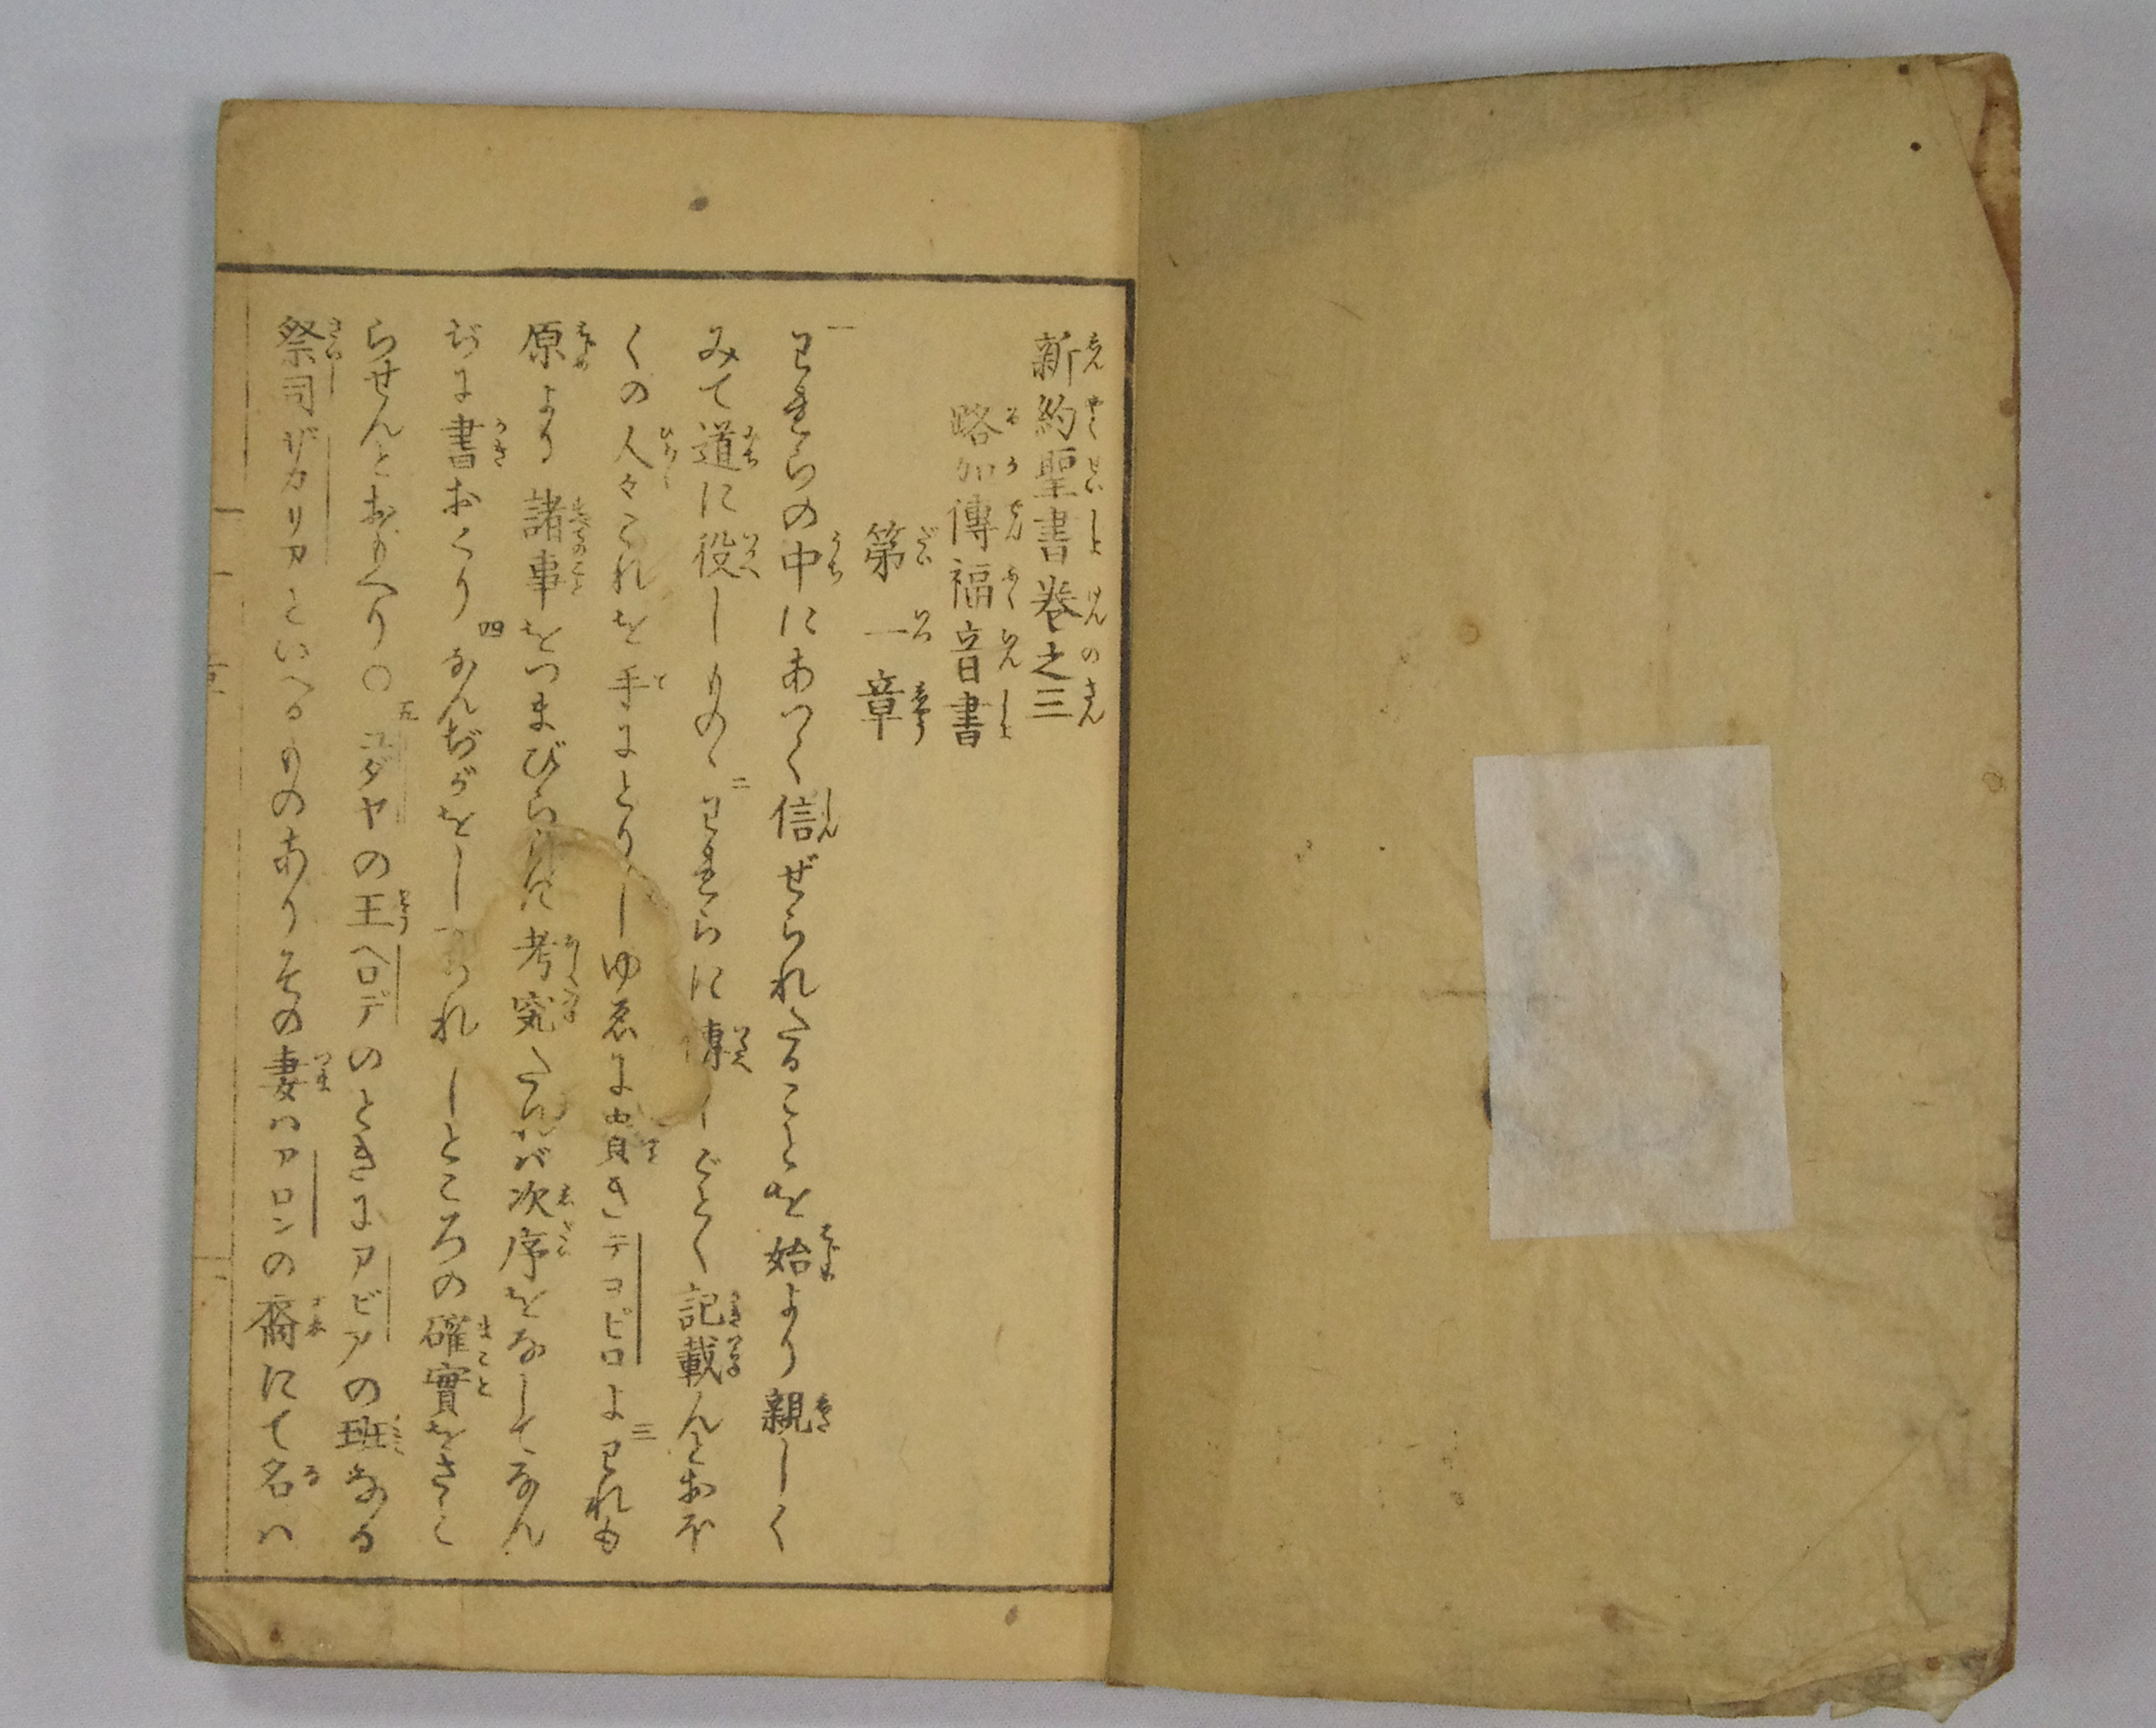 新約聖書卷之三
路加傳福音書
第一章
一 われらの中にあつく信ぜられたることを始より親しく
みて道に役しもの二われらに傳しごとく記載んとおほ
くの人々これを手にとりしゆゑに貴きテヨピロよ三われも
原より諸事をつまびらかに考究たれバ次序をなしてなん
ぢに書おくり四なんぢがをしへられしところの確實をさと
らせんとおもへり〇五ユダヤの王ヘロデのときにアビアの班なる
祭司ザカリアといへるものありその妻ハアロンの裔にて名ハ